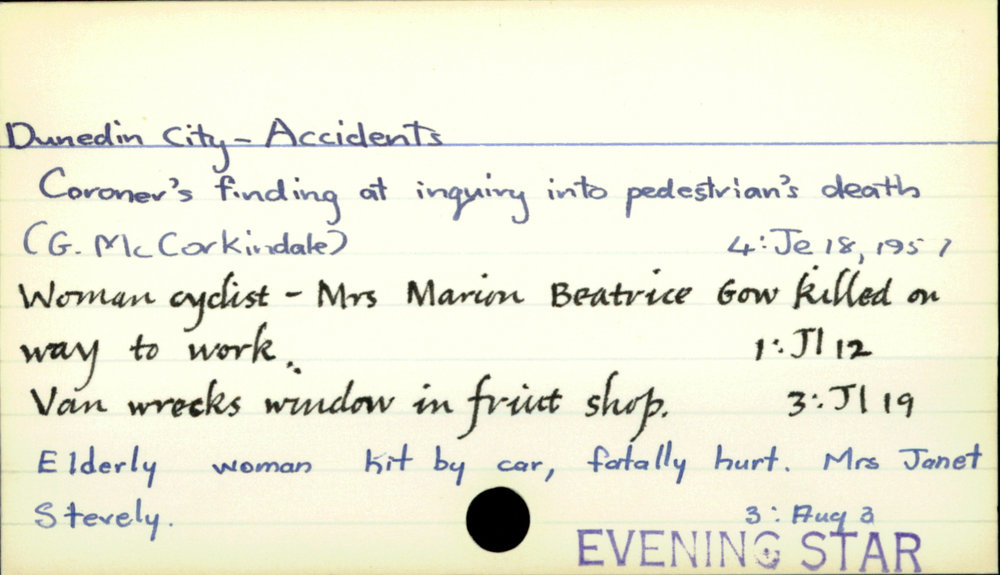 Dunedin City - Accidents
Coroner's finding at inquiry into pedestrian's death
(G. McCorkindale) 4: Je 18, 1957
Woman cyclist - Mrs Marion Beatrice Gow killed on
way to work. 1: Jl 12
Van wrecks window in friut shop. 3: Jl 19
Elderly woman hit by car, fatally hurt. Mrs Janet
Stevely. 3: Aug 3
EVENING STAR